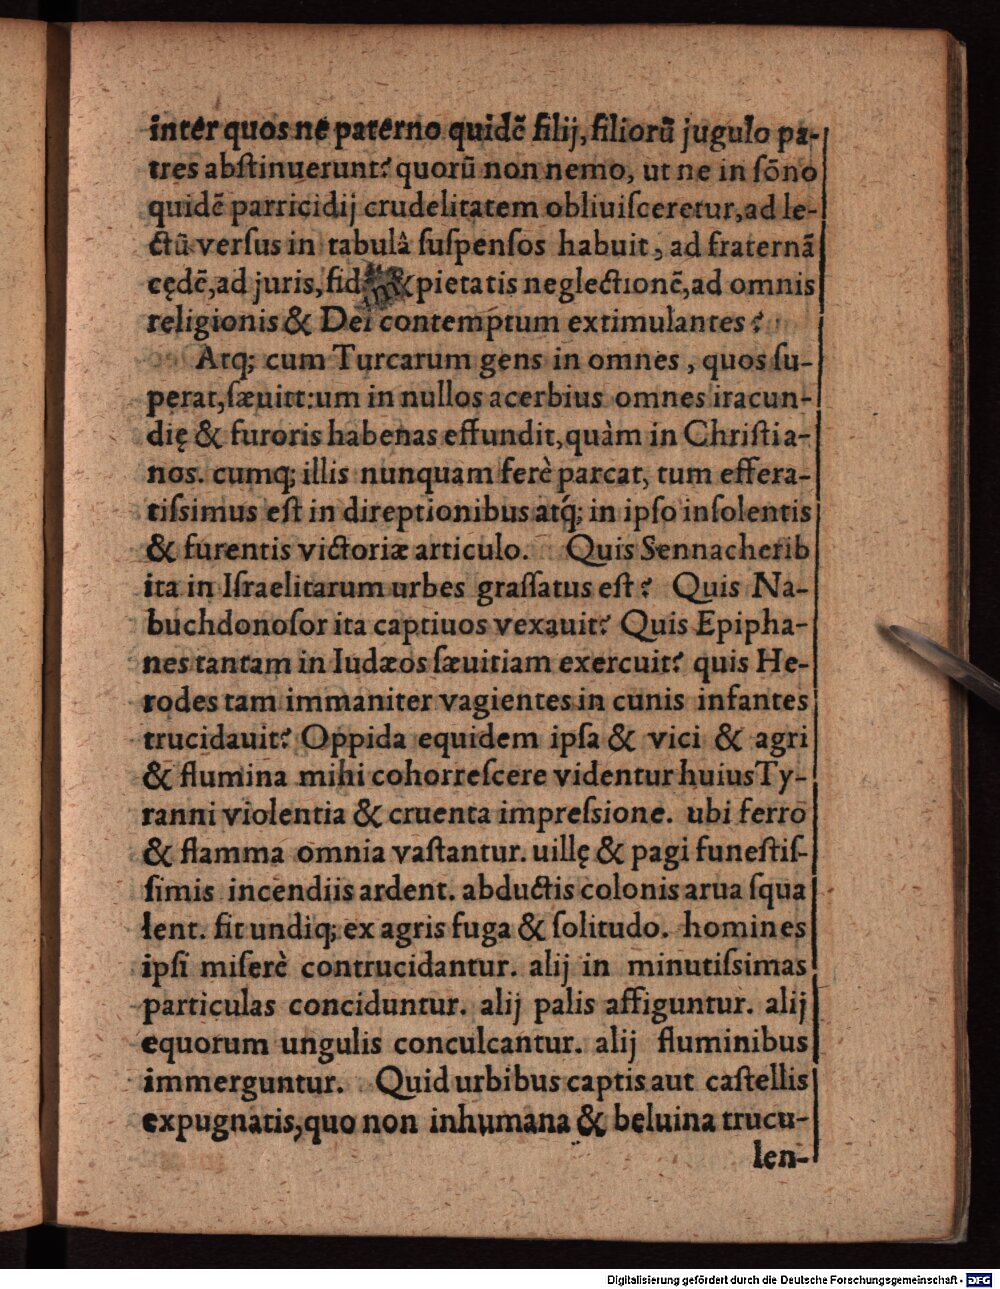 inter quos ne paterno quidẽ filij, filiorũ jugulo pa-
tres abſtinuerunt? quorũ non nemo, ut ne in ſõno
quidẽ parricidij crudelitatem obliuiſceretur, ad le-
ctũ verſus in tabulâ ſuſpenſos habuit, ad fraternã
cędẽ, ad juris, & pietatis neglectionẽ, ad omnis
religionis & Dei contemptum extimulantes?
Atq; cum Turcarum gens in omnes, quos ſu-
perat, ſæuitt: um in nullos acerbius omnes iracun-
dię & furoris habenas effundit, quàm in Chriſtia-
nos. cumq; illis nunquam ferè parcat, tum effera-
tiſsimus eſt in direptionibus atq́; in ipſo inſolentis
& furentis victoriæ articulo. Quis Sennacherib
ita in Iſraelitarum urbes graſſatus eſt? Quis Na-
buchdonoſor ita captiuos vexauit? Quis Epipha-
nes tantam in Iudæos ſæuitiam exercuit? quis He-
rodes tam immaniter vagientes in cunis infantes
trucidauit? Oppida equidem ipſa & vici & agri
& flumina mihi cohorreſcere videntur huius Ty-
ranni violentia & cruenta impreſsione. ubi ferro
& flamma omnia vaſtantur. uillę & pagi funeſtiſ-
ſimis incendiis ardent. abductis colonis arua ſqua
lent. fit undiq; ex agris fuga & ſolitudo. homines
ipſi miſerè contrucidantur. alij in minutiſsimas
particulas conciduntur. alij palis affiguntur. alij
equorum ungulis conculcantur. alij fluminibus
immerguntur. Quid urbibus captis aut caſtellis
expugnatis, quo non inhumana & beluina trucu-
len-
Digitalisierung gefördert durch die Deutsche Forschungsgemeinschaft - DFG